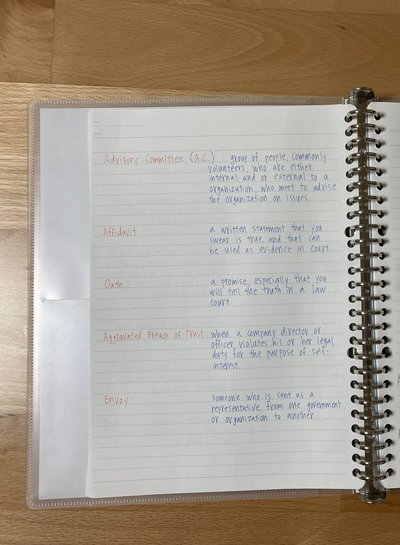 Advisory Committee (A.C.) group of people, commonly
volunteers, who are either
internal and or external to a
organization, who meet to advise
the organization on issues.
Affidavit a written statement that you
swear is true, and that can
be used as evidence in court.
Oath a promise, especially that you
will tell the truth in a law
court.
Aggravated Breach of Trust when a company director or
officer violates his or her legal
duty for the purpose of self-
interest.
Envoy someone who is sent as a
representative from one government
or organization to another.